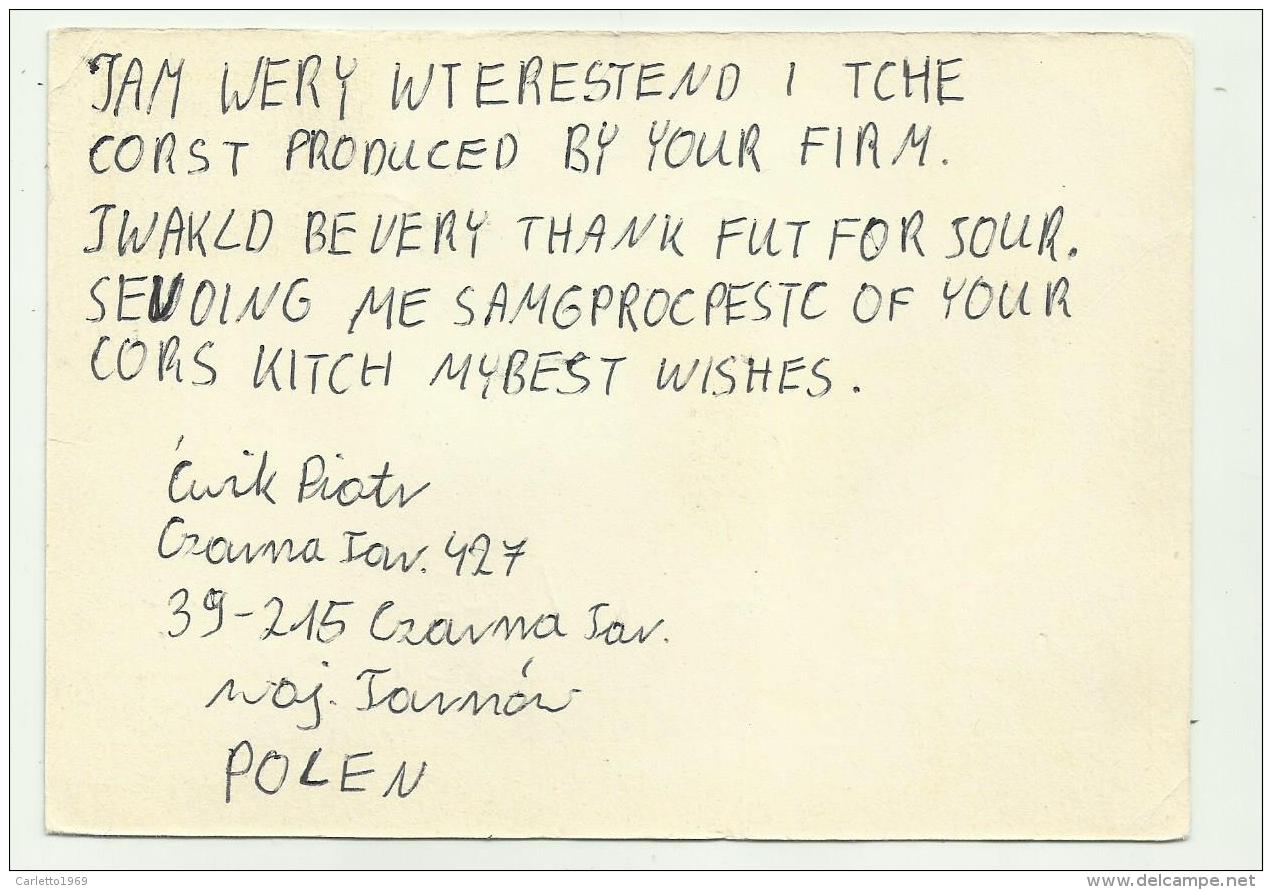 JAM WERY WTERESTEND I TCHE
CORST PRODUCED BY YOUR FIRM.
JWAKLD BE VERY THANK FUT FOR JOUR.
SEUDING ME SAMGPROCPESTC OF YOUR
CORS KITCH MYBEST WISHES.
Ćwik Piotr
Czarna Tar. 427
39-215 Czarna Tar.
woj. Tarnów
POLEN
Carletto1969
www.delcampe.net